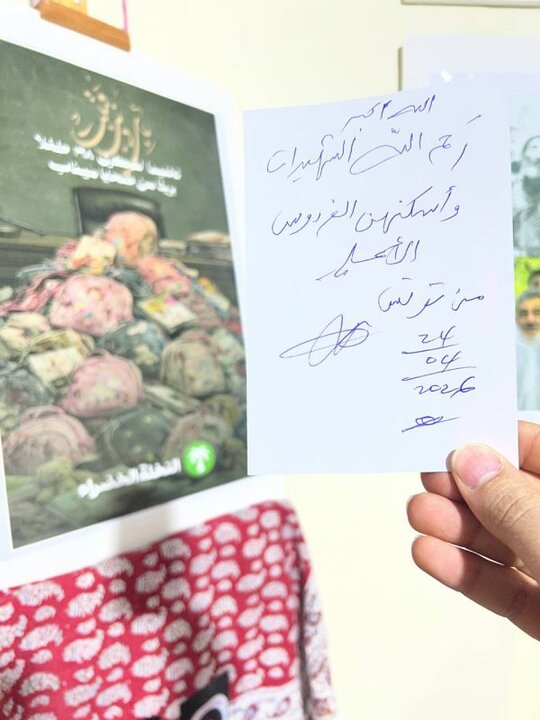 ميناب
النخلة الخضراء
الله أكبر
رحم الله الشهيدات
وأسكنهن الفردوس
الأعلى
من تونس
24
04
2026